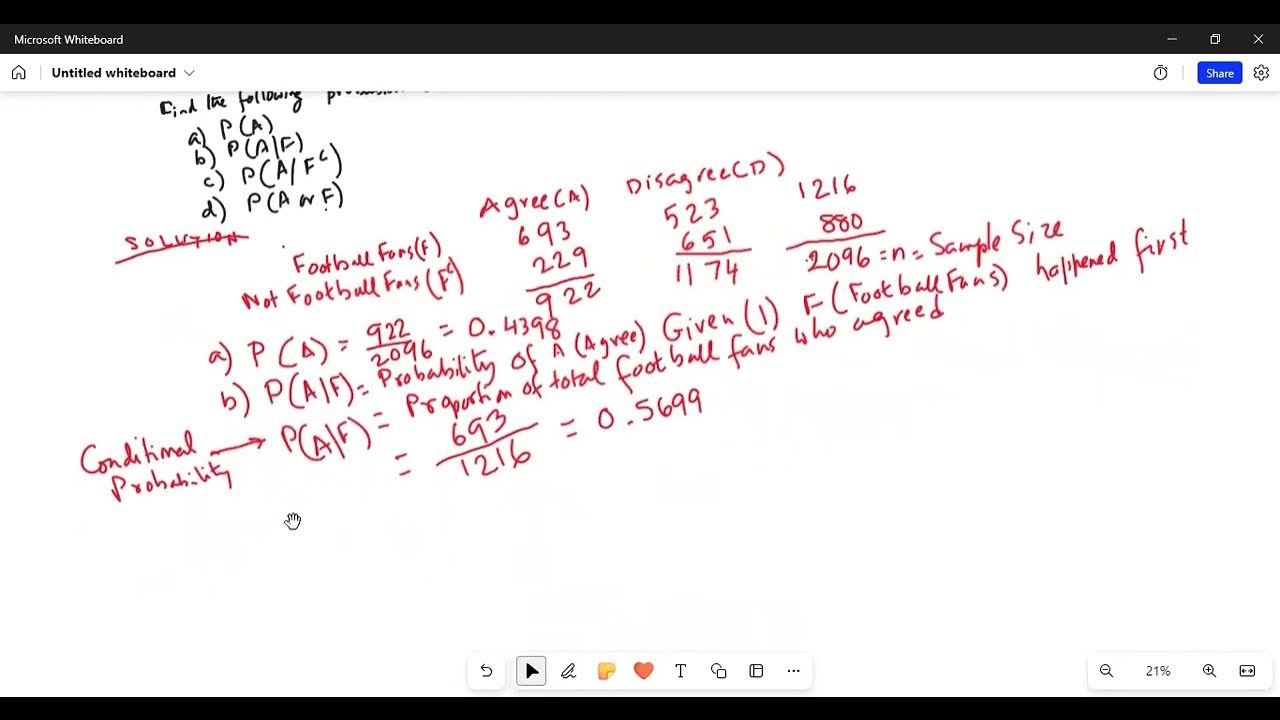 Microsoft Whiteboard
Untitled whiteboard
Share
Find the following
a) P(A)
b) P(A|F)
c) P(A/F^c)
d) P(A or F)
SOLUTION
Agree(A) Disagree(D)
Football Fans(F) 693 523 1216
Not Football Fans(F^c) 229 651 880
922 1174 2096 = n = Sample Size
a) P(A) = 922/2096 = 0.4398
b) P(A|F) = Probability of A (Agree) Given (|) F (Football Fans) happened first
= Proportion of total football fans who agreed
Conditional Probability → P(A|F) = 693/1216 = 0.5699
21%